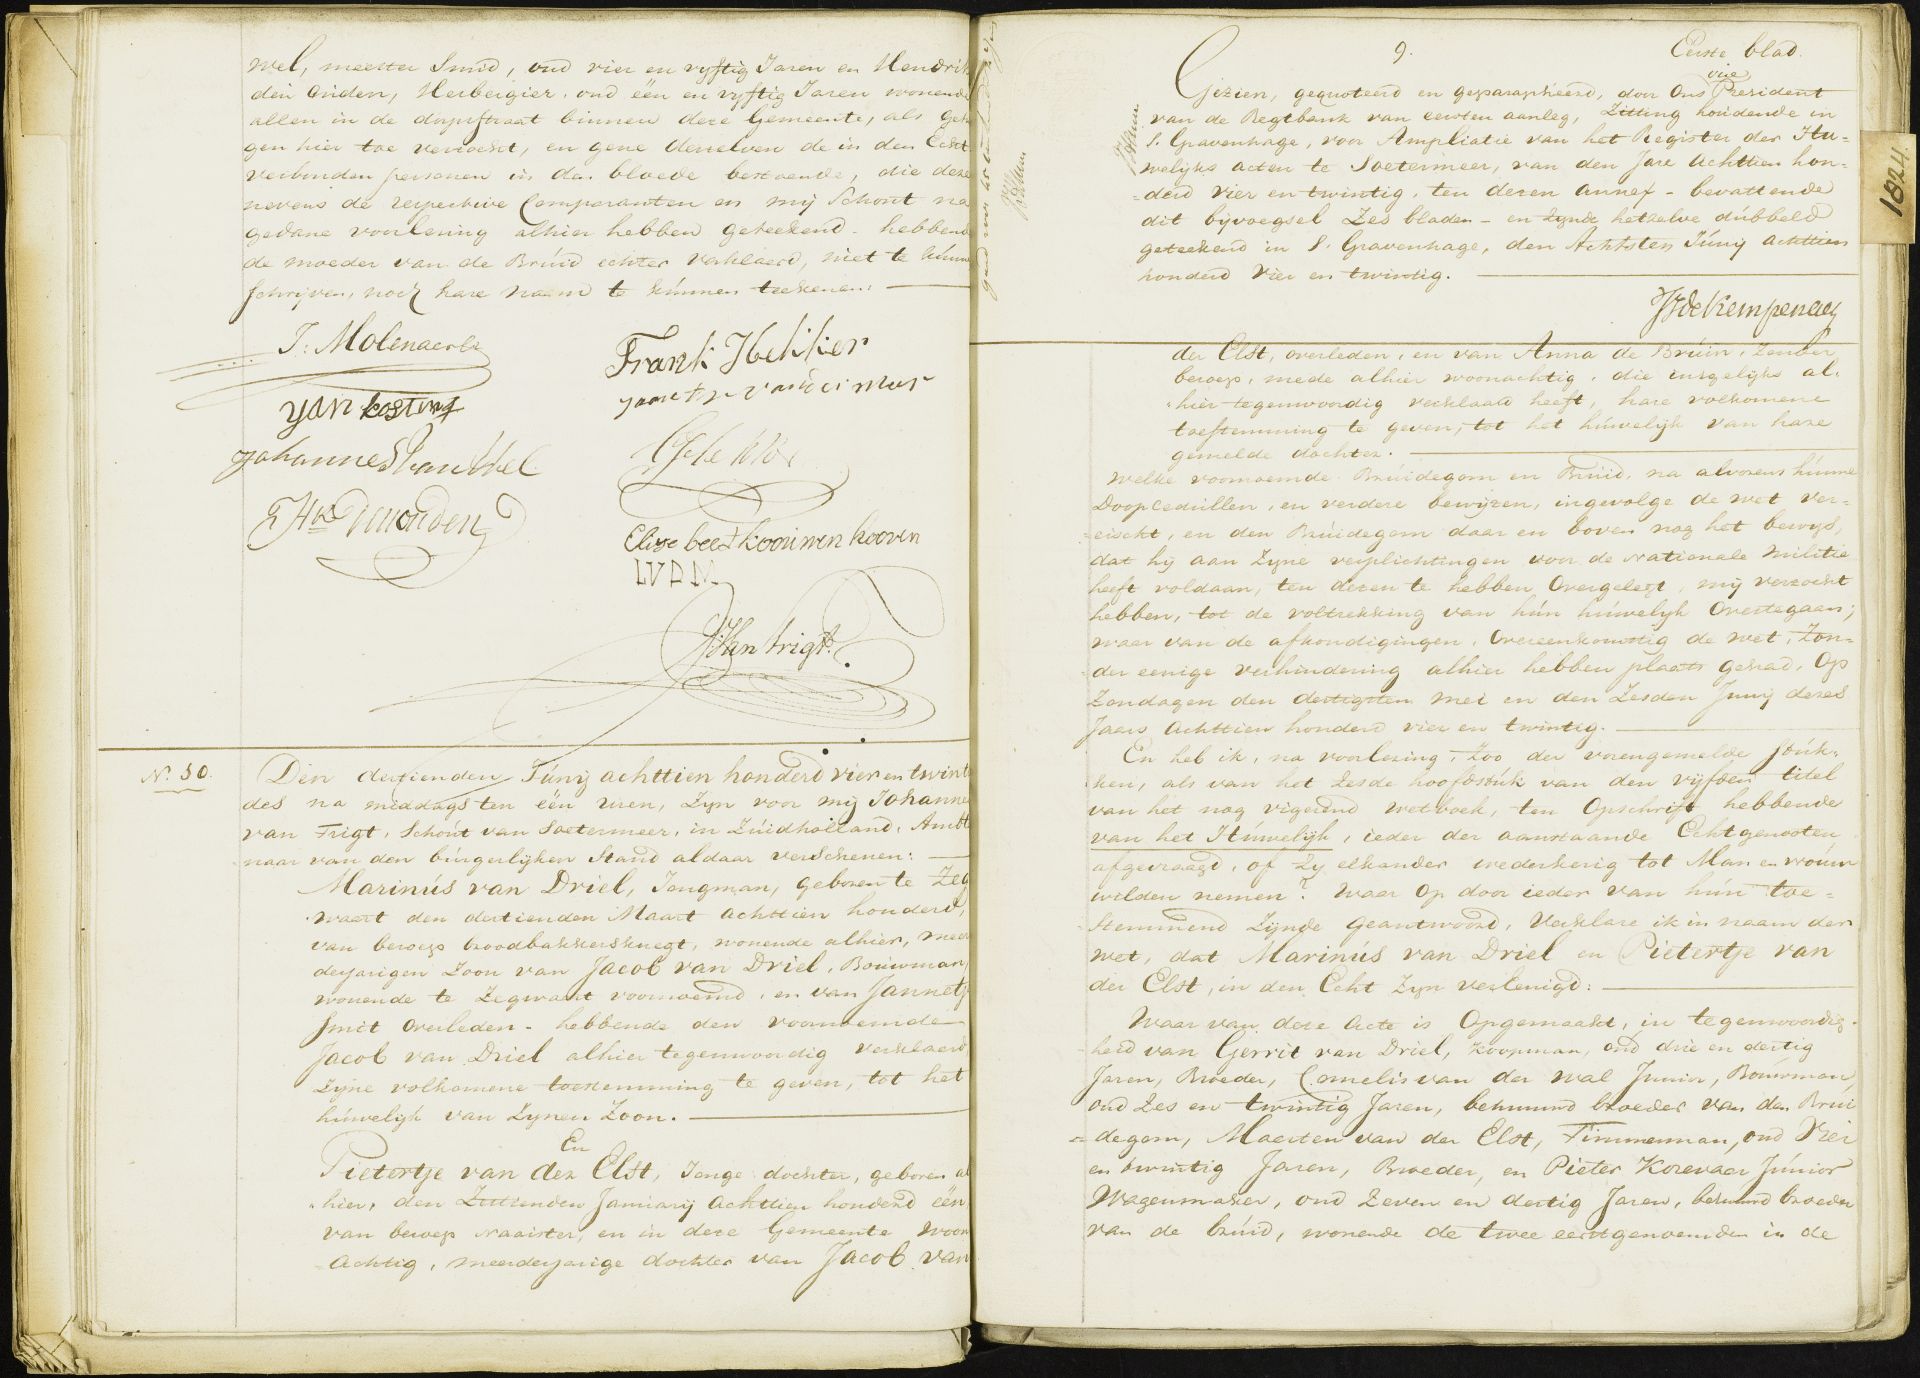 wel, meester Smid, oud vier en vyftig Jaren en Hendrik
den Ouden, Herbergier, oud één en vyftig Jaren wonende
allen in de dorpstraat binnen deze Gemeente, als getu
gen hier toe verzocht, en gene derzelven de in den Echt
verbonden personen in den bloede bestaende, die deze
nevens de respective Comparanten en mij Schout na
gedane voorlezing alhier hebben geteekend - hebbende
de moeder van de Bruid echter verklaerd, niet te kunne
schrijven, noch hare naam te kunnen teekenen.
J: Molenaer
Frank Hekker
Jan kosting
Johannes van Wel
Elizebeet
LVDM
J. Van Trigt.
No. 50.
Den dertienden Júnij achttien honderd vier en twinti
des na middags ten één uren, Zyn voor mij Johannes
van Trigt, Schout van Soetermeer, in Zúidholland, Ambte
naar van den burgerlijken Stand aldaar verschenen:
Marinús van Driel, Jongman, geboren te Zeg
waert den dertienden Maart achttien honderd,
van beroep broodbakkersknegt, wonende alhier, meer
derjarigen Zoon van Jacob van Driel, Bouwman,
wonende te Zegwaart voornoemd, en van Jannetje
Smit overleden - hebbende den voornoemde
Jacob van Driel alhier tegenwoordig verklaerd
Zyne volkomene toestemming te geven, tot het
húwelijk van Zynen Zoon.
En
Pietertje van der Elst, Jonge dochter, geboren al
hier, den Januarij achttien honderd één,
van beroep naaister, en in deze Gemeente woon
achtig, meerderjarige dochter van Jacob van
9.
Eerste blad.
Gezien, gequoteerd en geparapheerd, door Ons vice President
van de Regtbank van eersten aanleg, Zitting houdende in
S. Gravenhage, voor Ampliatie van het Register der Hu-
welijks acten te Soetermeer, van den Jare achttien hon-
derd vier en twintig, ten dezen annex - bevattende
dit bijvoegsel Zes bladen - en Zynde hetzelve dúbbeld
geteekend in S. Gravenhage, den Achtsten Júnij achttien
honderd vier en twintig.
de Kempenaer
1824.
der Elst, overleden, en van Anna de Brúin, Zonder
beroep, mede alhier woonachtig, die insgelijks al-
hier tegenwoordig verklaard heeft, hare volkomene
toestemming te geven, tot het húwelijk van hare
gemelde dochter.
Welke voornoemde Brúidegom en Brúid, na alvorens húnne
Doopcedúllen, en verdere bewijzen, ingevolge de wet ver-
eischt, en den Brúidegom daar en boven nog het bewijs,
dat hij aan Zyne verplichtingen voor de Nationale Militie
heeft voldaan, ten dezen te hebben overgelegt, mij verzocht
hebben, tot de voltrekking van hún húwelijk overtegaan;
waar van de afkondigingen, overeenkomstig de wet, Zon-
der eenige verhindering alhier hebben plaats gehad, Op
Zondagen den dertigsten Mei en den Zesden Junij dezes
Jaars achttien honderd vier en twintig.
En heb ik, na voorlezing, Zoo der vorengemelde stúk-
ken, als van het Zesde hoofdstúk van den vijfden titel
van het nog vigerend wetboek, ten Opschrift hebbende
van het Húwelijk, ieder der aanstaande Echtgenooten
afgevraagd, of Zy elkander wederkerig tot Man en vroúw
wilden nemen? Waar op door ieder van hún toe-
stemmend Zijnde geantwoord, Verklare ik in naam der
wet, dat Marinús van Driel en Pietertje van
der Elst, in den Echt Zyn verleenigd:
Waar van deze Acte is Opgemaakt, in tegenwoordig-
heid van Gerrit van Driel, Koopman, oud drie en dertig
Jaren, Broeder, Cornelis van der Wal Junior, Bouwman,
oud Zes en twintig Jaren, behuwd broeder van den Brui
degom, Maerten van der Elst, Timmerman, oud Vier
en twintig Jaren, Broeder, en Pieter Korevaer Júnior
Wagenmaker, oud Zeven en dertig Jaren, behuwd broeder
van de brúid, wonende de twee eerstgenoemden in de